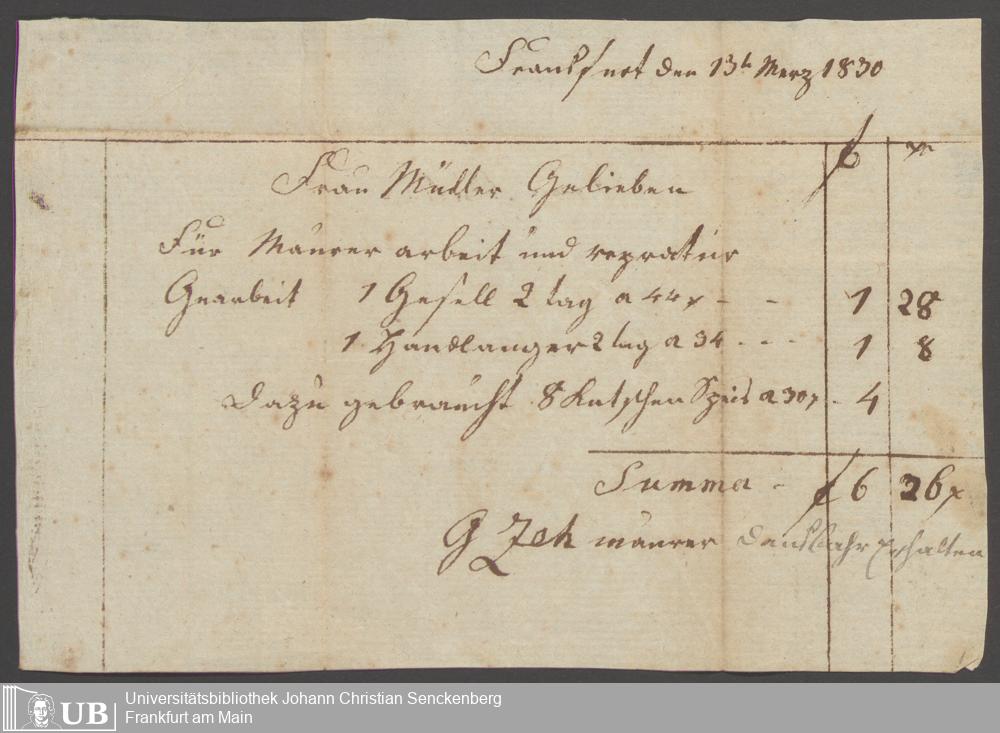 Frankfurt den 13t Merz 1830
f xr
Frau Müller Gelieben
Für Maurer arbeit und repratur
Gearbeit 1 Gesell 2 tag a 44x - - 1 28
1 Handlanger 2 tag a 34 - - - 1 8
dazu gebraucht 8 Butschen Speis a 30x - 4
Summa - f 6 36x
G maurer dankbahr erhalten
UB
Universitätsbibliothek Johann Christian Senckenberg
Frankfurt am Main